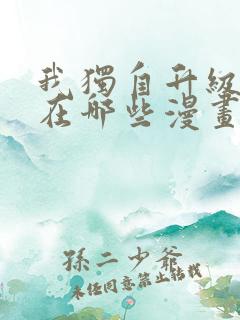 我獨自升級
在哪些漫畫
孫二少爺
未經同意禁止轉載